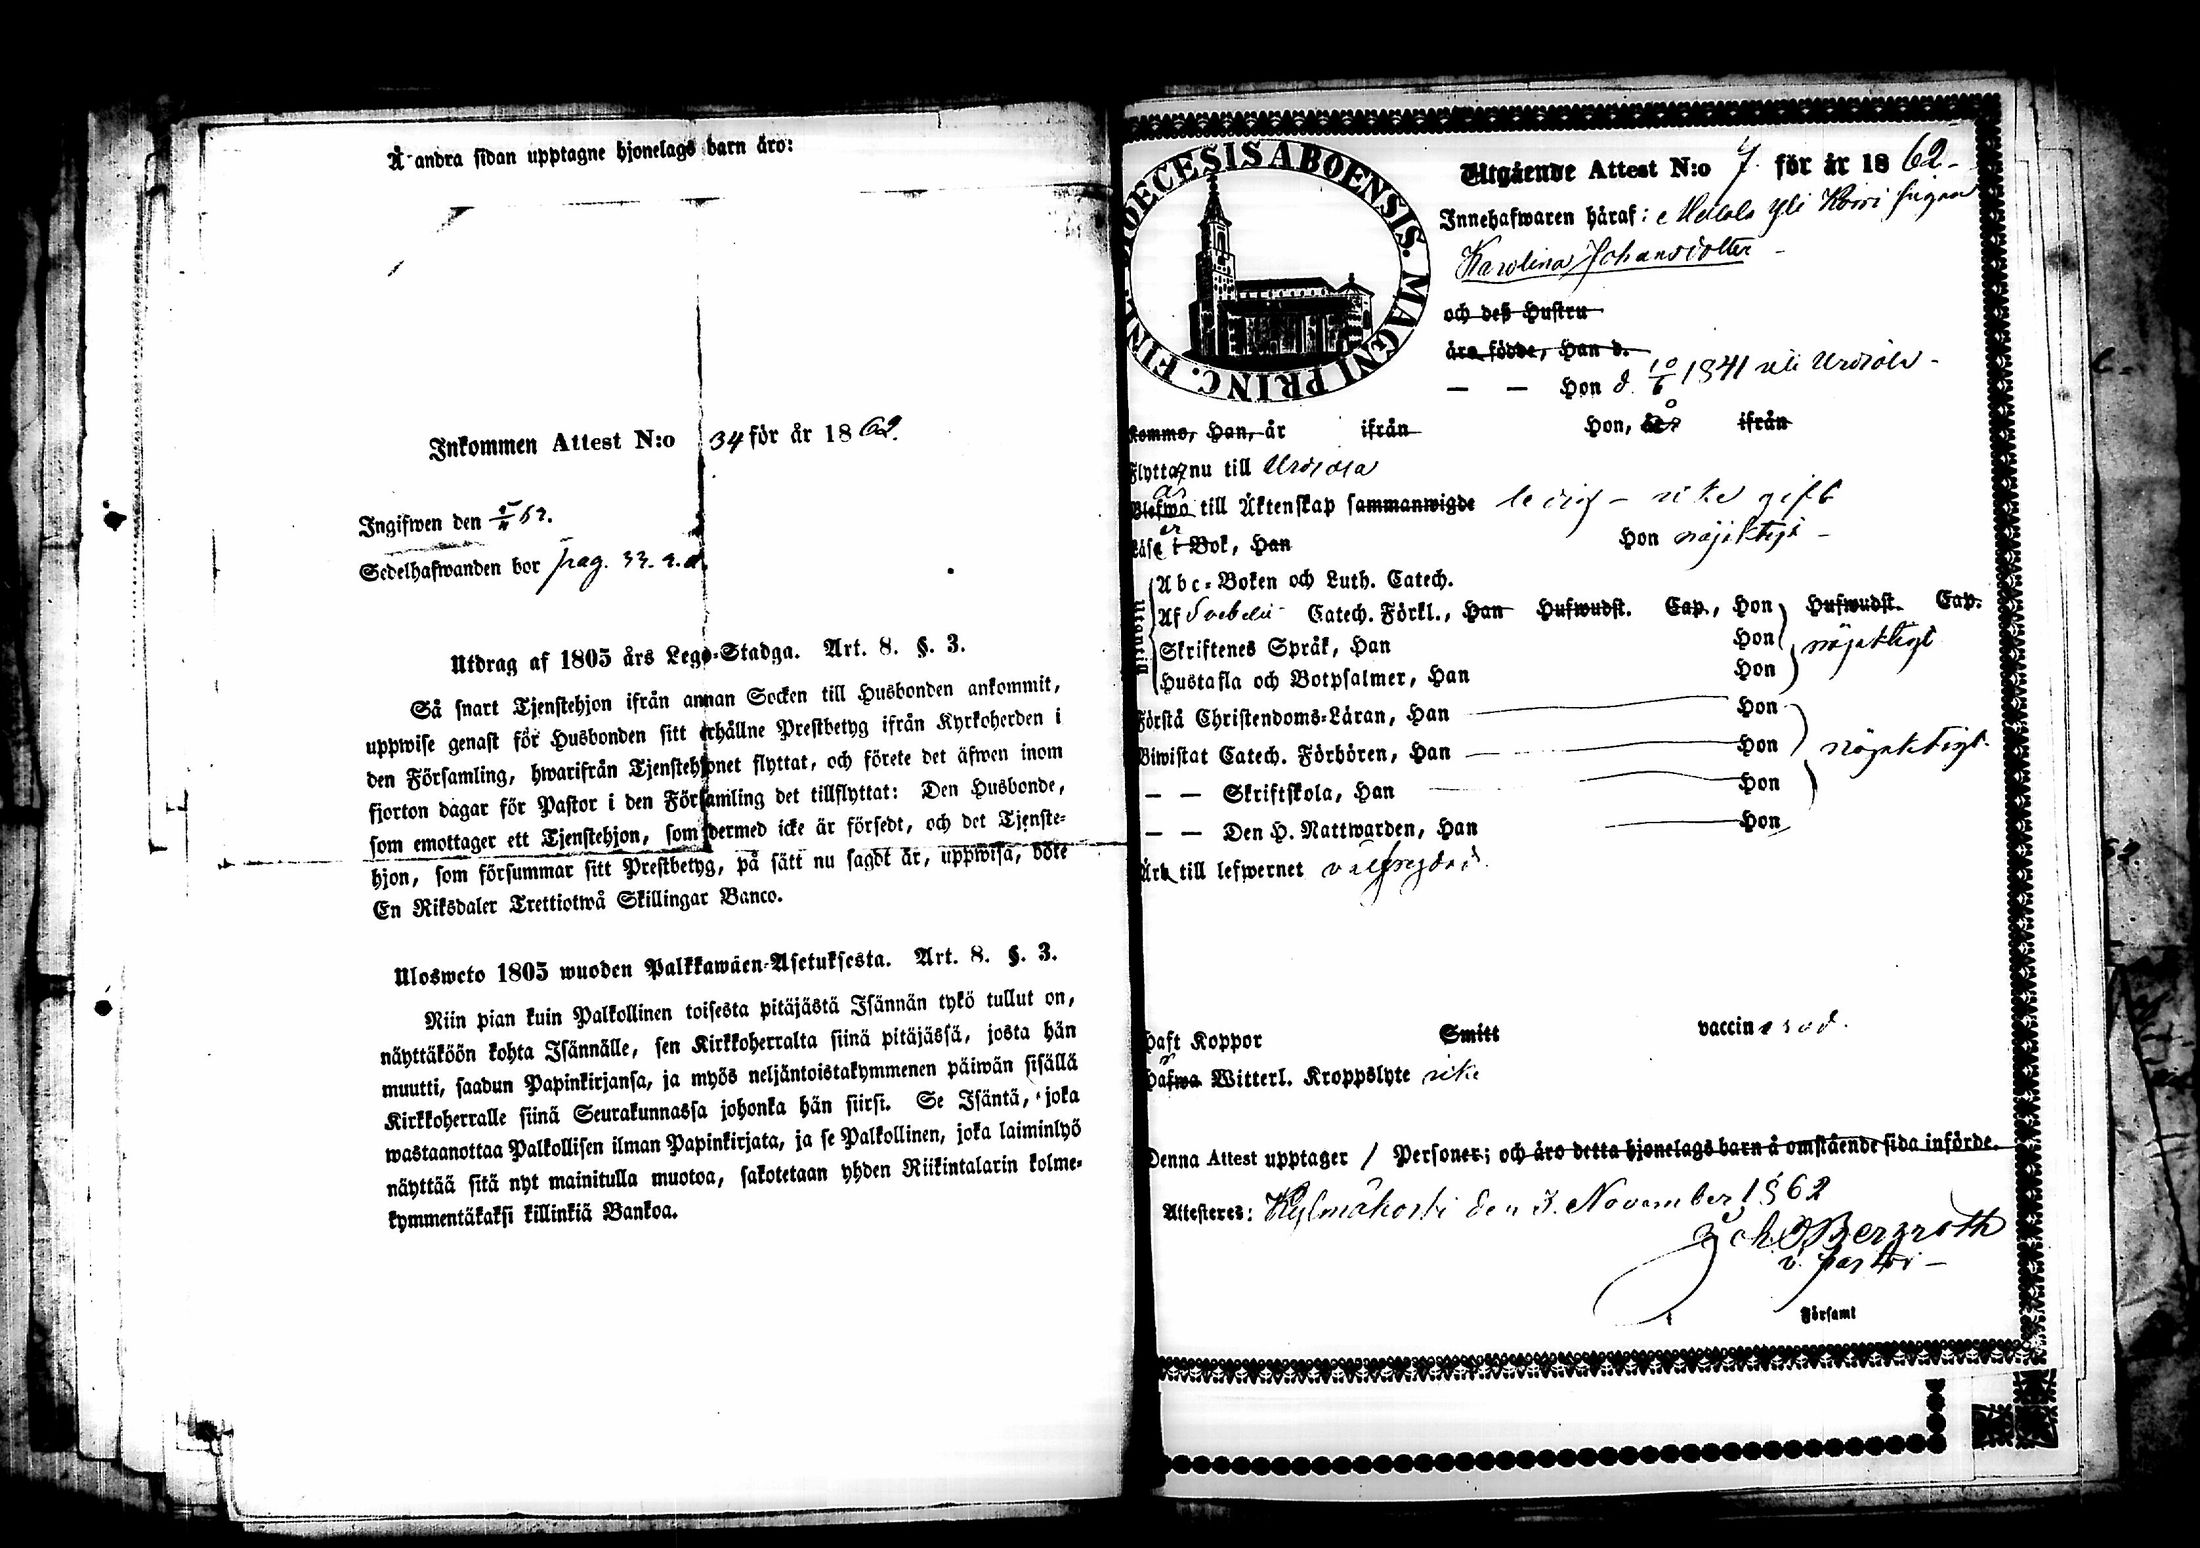 Å andra sidan upptagne hjonelags barn äro:
Inkommen Attest N:o 34 för år 1862.
Ingifwen den 5/11 62.
Sedelhafwanden bor pag. 33.
Utdrag af 1805 års Lego-Stadga. Art. 8. §. 3.
Så snart Tjenstehjon ifrån annan Socken till Husbonden ankommit,
uppwise genast för Husbonden sitt erhållne Prestbetyg ifrån Kyrkoherden i
den Församling, hwarifrån Tjenstehjonet flyttat, och förete det äfwen inom
fjorton dagar för Pastor i den Församling det tillflyttat: Den Husbonde,
som emottager ett Tjenstehjon, som dermed icke är försedt, och det Tjenste-
hjon, som försummar sitt Prestbetyg, på sätt nu sagdt är, uppwisa, böte
En Riksdaler Trettiotwå Skillingar Banco.
Ulosweto 1805 wuoden Palkkawäen-Asetuksesta. Art. 8. §. 3.
Niin pian kuin Palkollinen toisesta pitäjästä Isännän tykö tullut on,
näyttäköön kohta Isännälle, sen Kirkkoherralta siinä pitäjässä, josta hän
muutti, saadun Papinkirjansa, ja myös neljäntoistakymmenen päiwän sisällä
Kirkkoherralle siinä Seurakunnassa johonka hän siirsi. Se Isäntä, joka
wastaanottaa Palkollisen ilman Papinkirjata, ja se Palkollinen, joka laiminlyö
näyttää sitä nyt mainitulla muotoa, sakotetaan yhden Riikintalarin kolme-
kymmentäkaksi killinkiä Bankoa.
DIOECESIS ABOENSIS. MAGNI PRINC. FINL.
Utgående Attest N:o 7. för år 1862-
Innehafwaren häraf: Yli Korri pigan
Karolina Johansdotter -
och deß Hustru
äro födde, Han d.
— — Hon d. 10/6 1841 uti Urdiala -
Komma, Han, år ifrån Hon, år ifrån
Flyttar nu till Urdiala
är
Blefwo till Äktenskap sammanwigde ledig - icke gift
er
Läsa i Bok, Han Hon nöjaktigt -
Utantill
Abc-Boken och Luth. Catech.
Af Svebelii Catech. Förkl., Han Hufwudst. Cap., Hon Hufwudst. Cap.
Skriftenes Språk, Han Hon nöjaktigt
Hustafla och Botpsalmer, Han Hon
Förstå Christendoms-Läran, Han Hon
Biwistat Catech. Förhören, Han Hon nöjaktigt.
— — Skriftskola, Han Hon
— — Den H. Nattwarden, Han Hon
Äro till lefwernet välfrejdad.
Haft Koppor Smitt vaccinerad.
Hafwa Witterl. Kroppslyte icke
Denna Attest upptager 1 Personer; och äro detta hjonelags barn å omstående sida införde.
Attesteres: Kylmäkoski den 3. November 1862
Joh. Bergroth
v. pastor -
i Församl